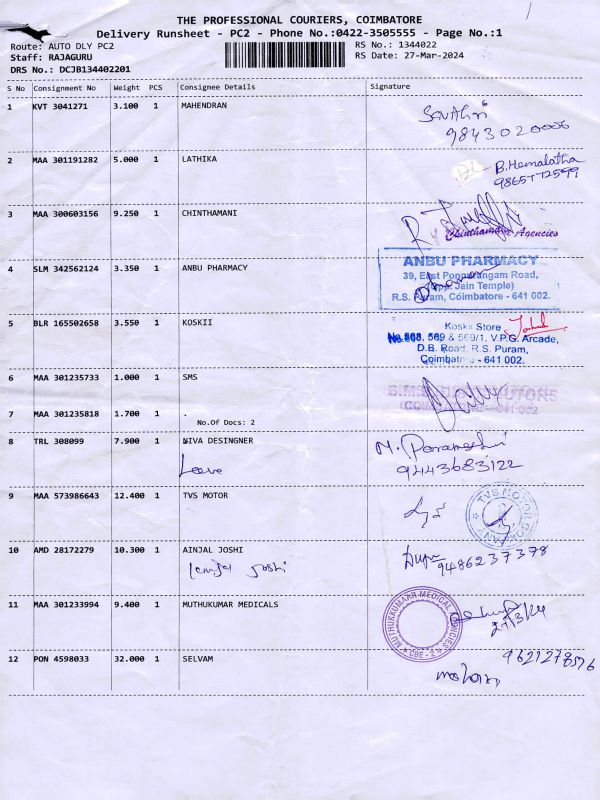 THE PROFESSIONAL COURIERS, COIMBATORE
Delivery Runsheet - PC2 - Phone No.:0422-3505555 - Page No.:1
Route: AUTO DLY PC2
RS No.: 1344022
Staff: RAJAGURU
RS Date: 27-Mar-2024
DRS No.: DCJB134402201
S No Consignment No Weight PCS Consignee Details Signature
1 KVT 3041271 3.100 1 MAHENDRAN
9843020006
2 MAA 301191282 5.000 1 LATHIKA B. Hemalatha
3 MAA 300603156 9.250 1 CHINTHAMANI
Chinthamani Agencies
4 SLM 342562124 3.350 1 ANBU PHARMACY
ANBU PHARMACY
39, East Ponnurangam Road,
(Opp. Jain Temple)
R.S. Puram, Coimbatore - 641 002.
5 BLR 165502658 3.550 1 KOSKII
Koskii Store
No.568, 569 & 569/1, V.P.G. Arcade,
D.B. Road, R.S. Puram,
Coimbatore - 641 002.
6 MAA 301235733 1.000 1 SMS
7 MAA 301235818 1.700 1 .
No.Of Docs: 2
8 TRL 308099 7.900 1 NIVA DESINGNER
Leave
9443683122
9 MAA 573986643 12.400 1 TVS MOTOR
TVS MOTOR COMPANY
10 AMD 28172279 10.300 1 AINJAL JOSHI
9486237378
Joshi
11 MAA 301233994 9.400 1 MUTHUKUMAR MEDICALS
MUTHUKKUMAAR MEDICAL AGENCIES
CBE - 2
27/3/24
12 PON 4598033 32.000 1 SELVAM
9621278576